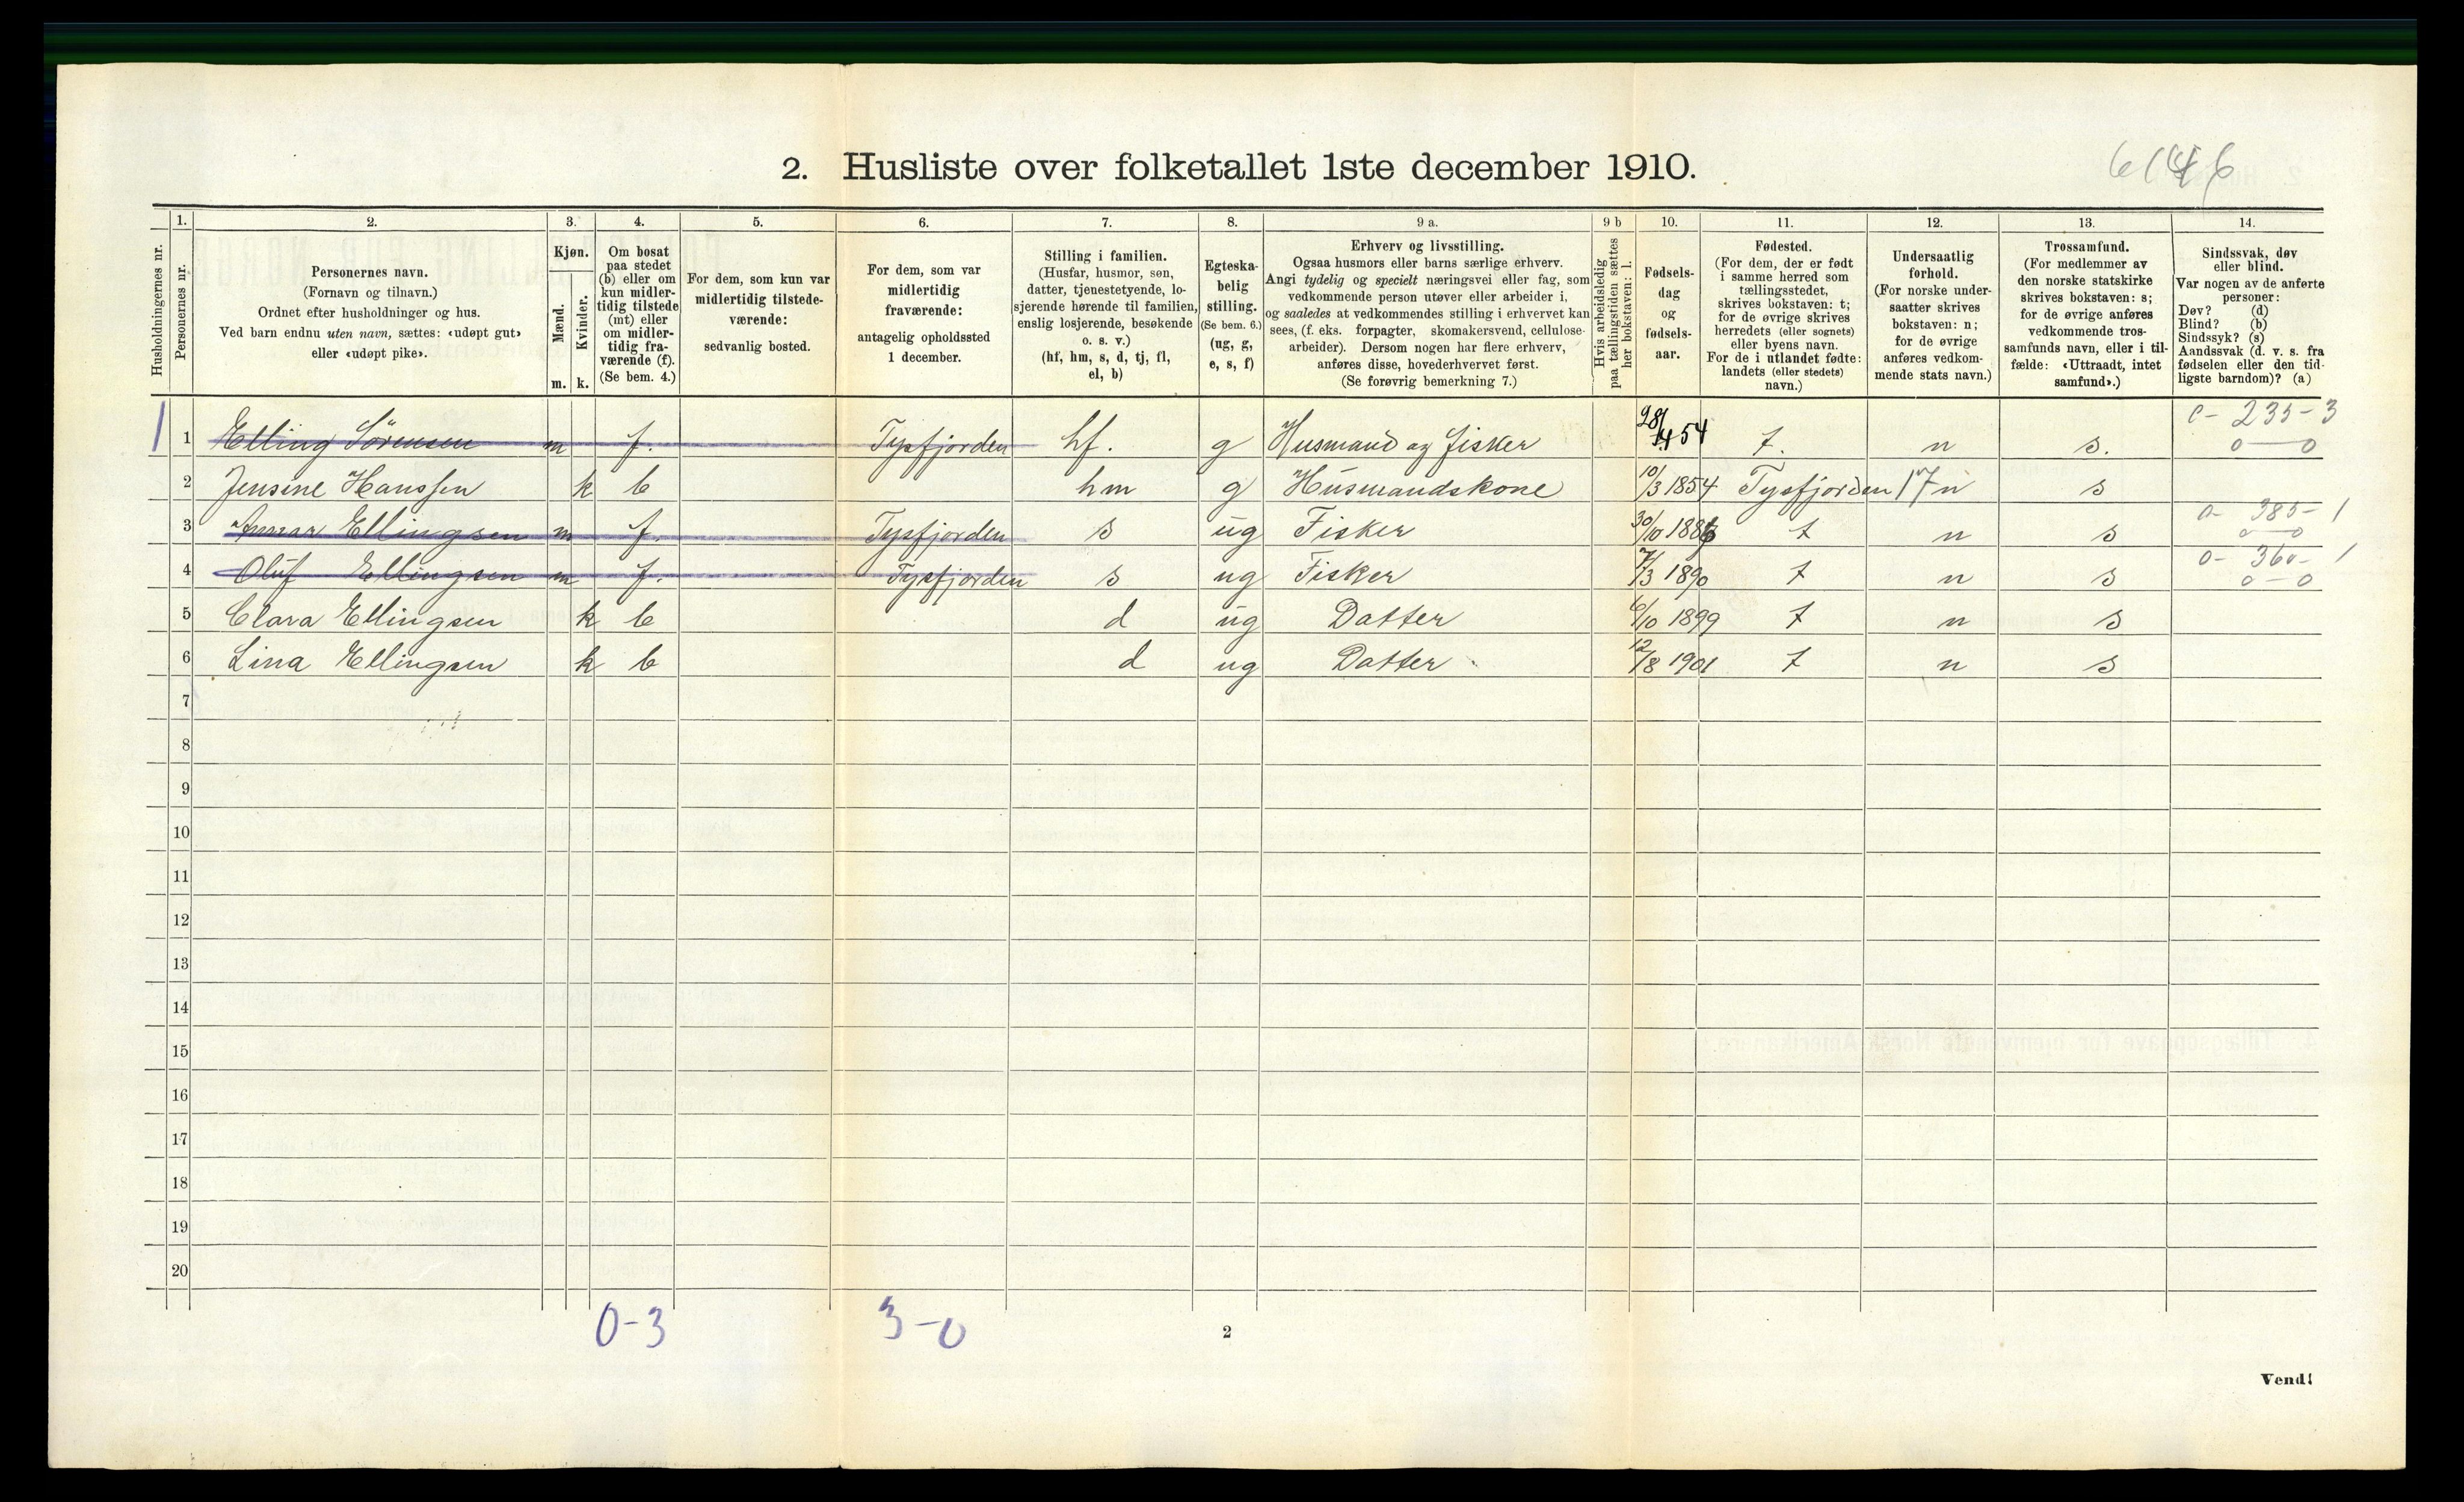 2. Husliste over folketallet 1ste december 1910.
1. 2. 3. 4. 5. 6. 7. 8. 9 a. 9 b 10. 11. 12. 13. 14.
Husholdningernes nr.
Personernes nr.
Personernes navn.
(Fornavn og tilnavn.)
Ordnet efter husholdninger og hus.
Ved barn endnu uten navn, sættes: «udøpt gut»
eller «udøpt pike».
Kjøn.
Mænd.
Kvinder.
m. k.
Om bosat
paa stedet
(b) eller om
kun midler-
tidig tilstede
(mt) eller
om midler-
tidig fra-
værende (f).
(Se bem. 4.)
For dem, som kun var
midlertidig tilstede-
værende:
sedvanlig bosted.
For dem, som var
midlertidig
fraværende:
antagelig opholdssted
1 december.
Stilling i familien.
(Husfar, husmor, søn,
datter, tjenestetyende, lo-
sjerende hørende til familien,
enslig losjerende, besøkende
o. s. v.)
(hf, hm, s, d, tj, fl,
el, b)
Egteska-
belig
stilling.
(Se bem. 6.)
(ug, g,
e, s, f)
Erhverv og livsstilling.
Ogsaa husmors eller barns særlige erhverv.
Angi tydelig og specielt næringsvei eller fag, som
vedkommende person utøver eller arbeider i,
og saaledes at vedkommendes stilling i erhvervet kan
sees, (f. eks. forpagter, skomakersvend, cellulose-
arbeider). Dersom nogen har flere erhverv,
anføres disse, hovederhvervet først.
(Se forøvrig bemerkning 7.)
Hvis arbeidsledig
paa tællingstiden sættes
her bokstaven: l.
Fødsels-
dag
og
fødsels-
aar.
Fødested.
(For dem, der er født
i samme herred som
tællingsstedet,
skrives bokstaven: t;
for de øvrige skrives
herredets (eller sognets)
eller byens navn.
For de i utlandet fødte:
landets (eller stedets)
navn.)
Undersaatlig
forhold.
(For norske under-
saatter skrives
bokstaven: n;
for de øvrige
anføres vedkom-
mende stats navn.)
Trossamfund.
(For medlemmer av
den norske statskirke
skrives bokstaven: s;
for de øvrige anføres
vedkommende tros-
samfunds navn, eller i til-
fælde: «Uttraadt, intet
samfund».)
Sindssvak, døv
eller blind.
Var nogen av de anførte
personer:
Døv? (d)
Blind? (b)
Sindssyk? (s)
Aandssvak (d. v. s. fra
fødselen eller den tid-
ligste barndom)? (a)
1 1 Elling Sörensen m f. Tysfjorden hf. g Husmand og fisker 28/4 54 t. n s. 235-3 0-0
2 Jensine Hanssen k b hm g Husmandskone 10/3 1854 Tysfjorden 17 n s
3 Ellingsen m f. Tysfjorden s ug Fisker 30/10 t n s 0- 385-1 0-0
4 Oluf Ellingsen m f. Tysfjorden s ug Fisker 7/3 1890 t n s 0- 360-1 0-0
5 Clara Ellingsen k b d ug Datter 6/10 1899 t n s
6 Lina Ellingsen k b d ug Datter 12/8 1901 t n s
7
8
9
10
11
12
13
14
15
16
17
18
19
20
0-3 3-0
2
Vend!